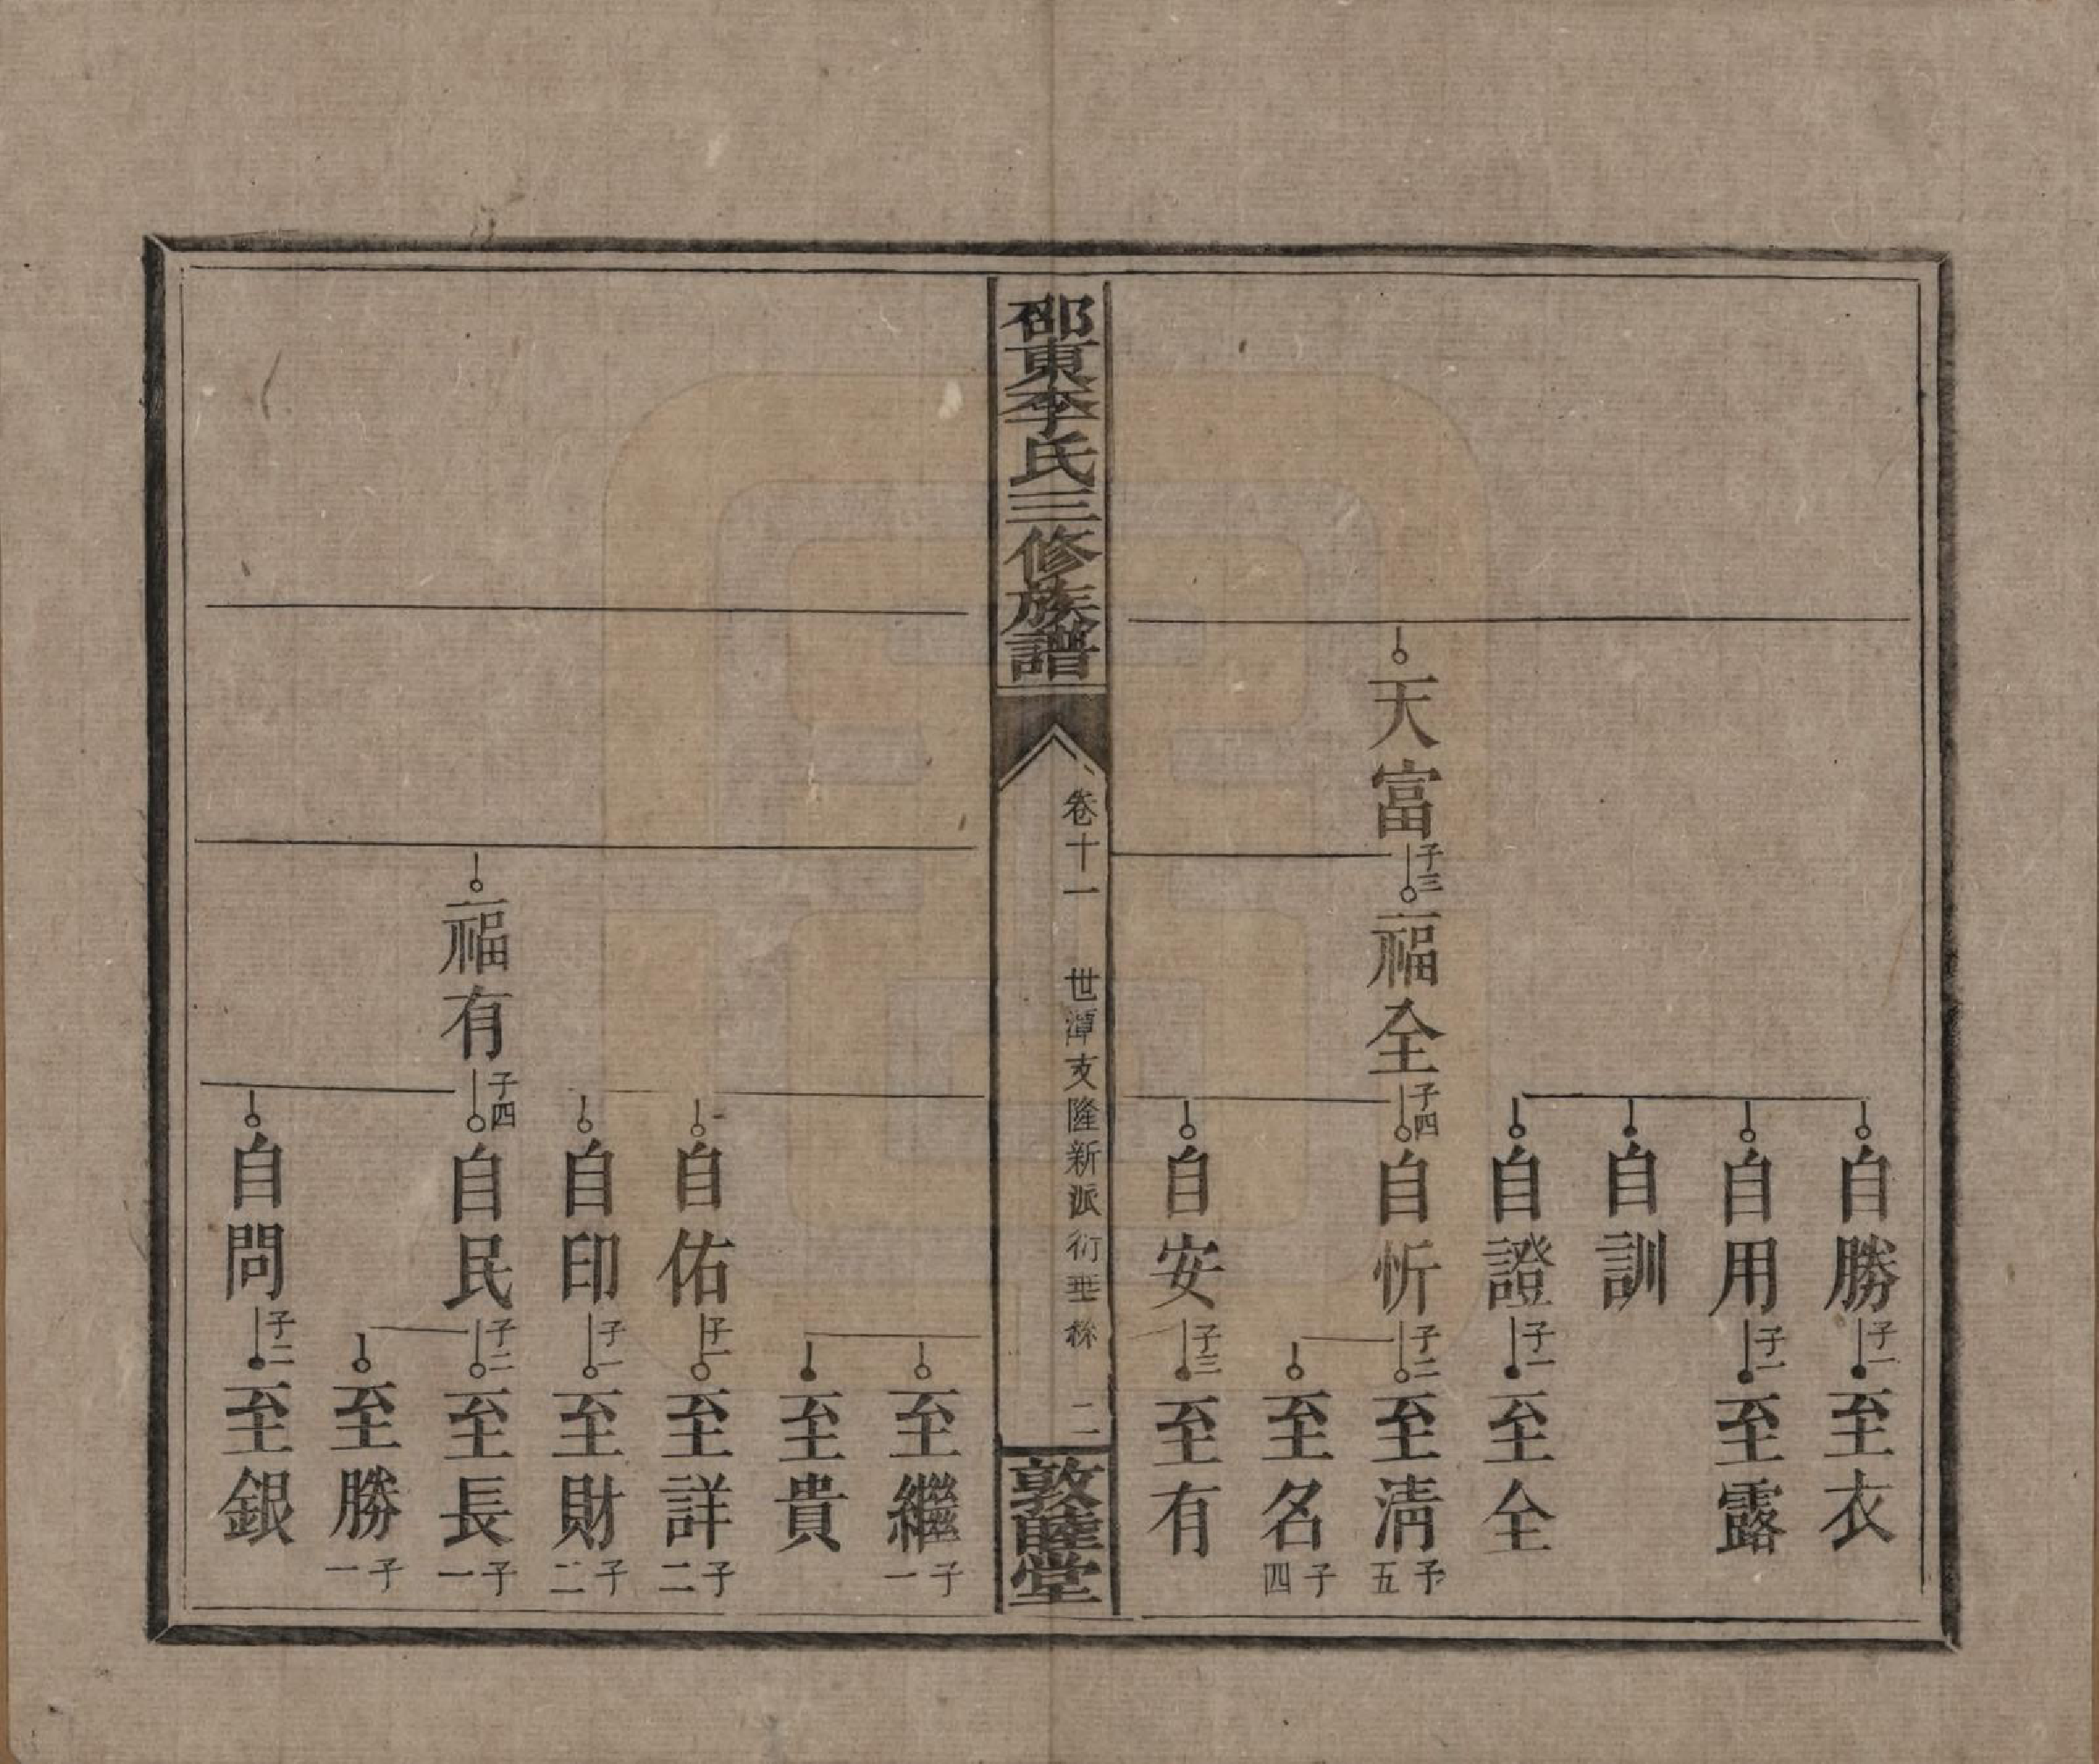 自勝子一至衣
自用子一至露
自訓
自證子一至全
天富子三福全子四自忻子二至清子五
至名子四
自安子三至有
邵東李氏三修族譜
卷十一 世潭支隆新派衍垂絲 二
敦睦堂
至繼子一
至貴
自佑子一至詳子二
自印子一至財子二
福有子四自民子二至長子一
至勝子一
自問子二至銀